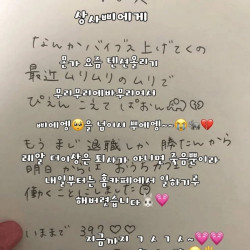 상사삐에게
なんかバイブス上げてくの
몬가 요즘 텐션올리기
最近ムリムリのムリで
무리무리에바무리여서
ぴえん こえて ぱおん
삐에엥🥺을 넘어서 뿌에엥~~😭💔
もう まじ 退職しか 勝たんから
레알 더이상은 퇴사가 아니면 죽음뿐이라
明日から
내일부터는 홈카페에서 일하기루
働くことにしました
해버렸습니다🐰💕
いままで 39♡♡
지금까지 ㄱㅅㄱㅅ~💕